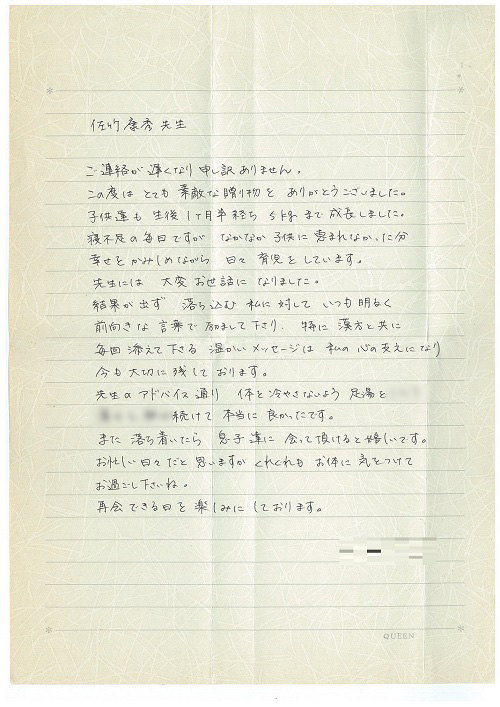 佐竹 康秀 先生
ご連絡が遅くなり申し訳ありません。
この度は とても 素敵な贈り物を ありがとうございました。
子供達も 生後1ヶ月半経ち 5kgまで成長しました。
寝不足の毎日ですが なかなか子供に 恵まれなかった分
幸せをかみしめながら 日々 育児をしています。
先生には 大変お世話に なりました。
結果が出ず 落ち込む 私に対して いつも明るく
前向きな 言葉で励まして下さり、特に 漢方と共に
毎回 添えて下さる 温かいメッセージは 私の心の支えになり
今も大切に残しております。
先生のアドバイス通り 体を冷やさないよう 足湯を
続けて 本当に 良かったです。
また 落ち着いたら 息子達に 会って頂けると嬉しいです。
お忙しい日々だと思いますが くれぐれも お体に気をつけて
お過ごし下さいね。
再会できる日を 楽しみに しております。
QUEEN